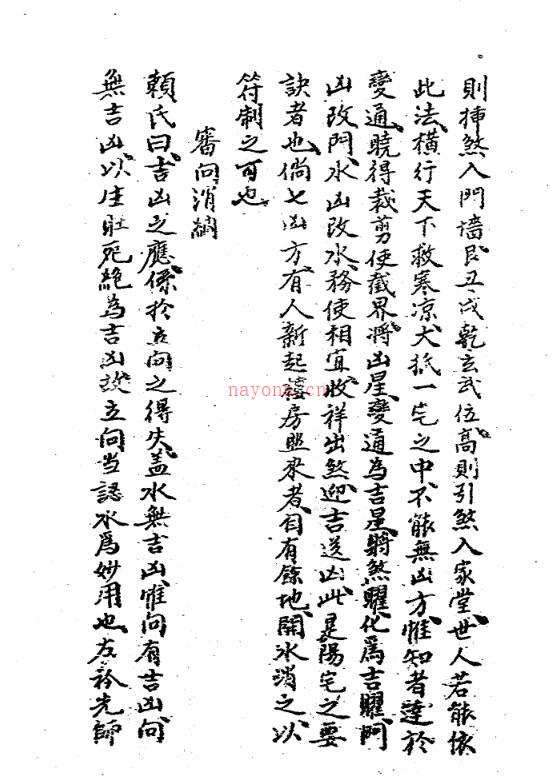 則揷煞入門墻艮丑戌乾玄武位高則引煞入家堂世人若能依
此法橫行天下救寒凉大抵一宅之中不能無凶方惟知者達於
變通曉得裁剪使截界將凶星變通為吉星將煞曜化為吉曜門
凶改門水凶改水務使相宜收祥出煞迎吉送凶此是陽宅之要
訣者也倘七凶方有人新起樓房照來者自有餘地開水消之以
符制之可也
審向消納
賴氏曰吉凶之應係於立向之得失盖水無吉凶惟向有吉凶向
無吉凶以生旺死絶為吉凶故立向当認水爲妙用也左衿先師
nayona.cn